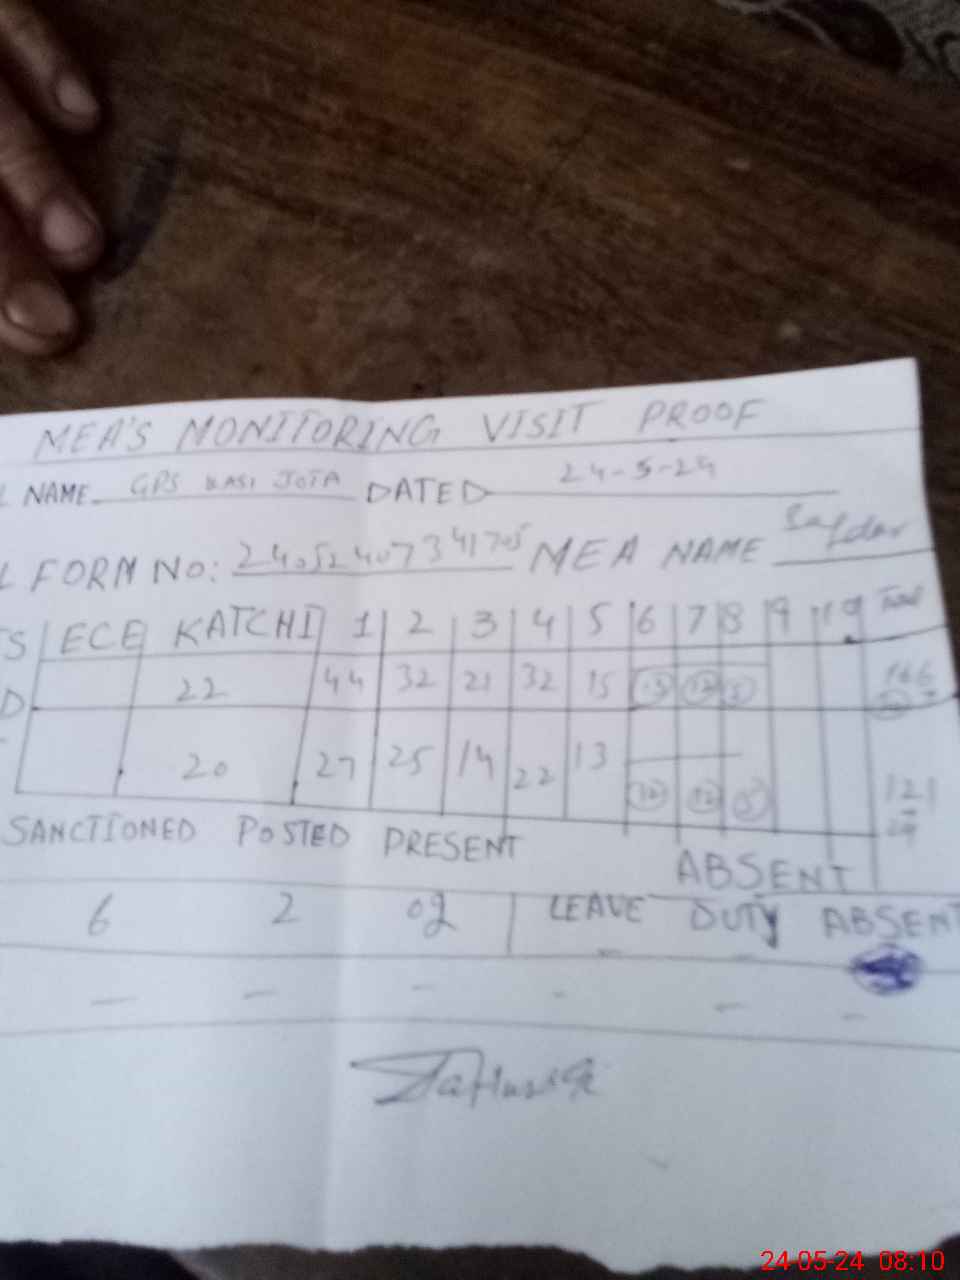 MEA'S MONITORING VISIT PROOF
L NAME GPS KASI JOTA DATED 24-5-24
L FORM NO: 24052407341705 MEA NAME Safdar
TS ECE KATCHI 1 2 3 4 5 6 7 8 9 10 Total
D 22 44 32 21 32 15 13 12 5 166
20 27 25 14 22 13 12 12 5 121
29
SANCTIONED POSTED PRESENT ABSENT
6 2 02 LEAVE DUTY ABSENT
- - -
- - - - - -
24-05-24 08:10